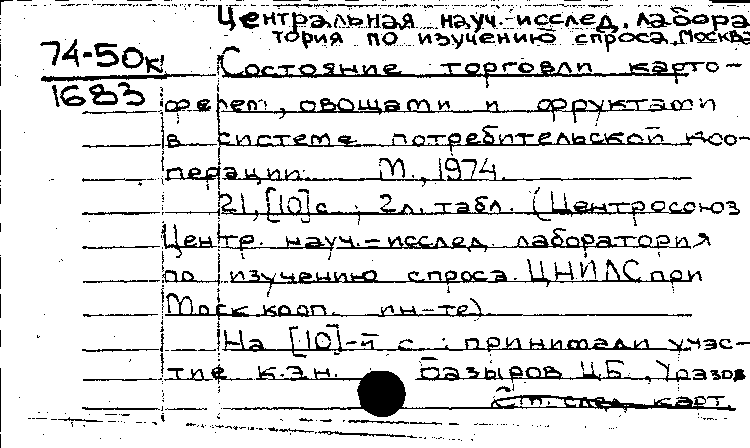 Центральная науч.-исслед. лабора
тория по изучению спроса, Москва
74-50к
1683
Состояние торговли карто-
фелем, овощами и фруктами
в системе потребительской коо-
перации. М., 1974.
21, [10] с ; 2 л. табл. (Центросоюз
Центр. науч.-исслед. лаборатория
по изучению спроса. ЦНИЛС при
Моск. кооп. ин-те).
На [10]-й с. : принимали учас-
тие к.э.н. Базыров Ц.Б., Уразов
См. след. карт.